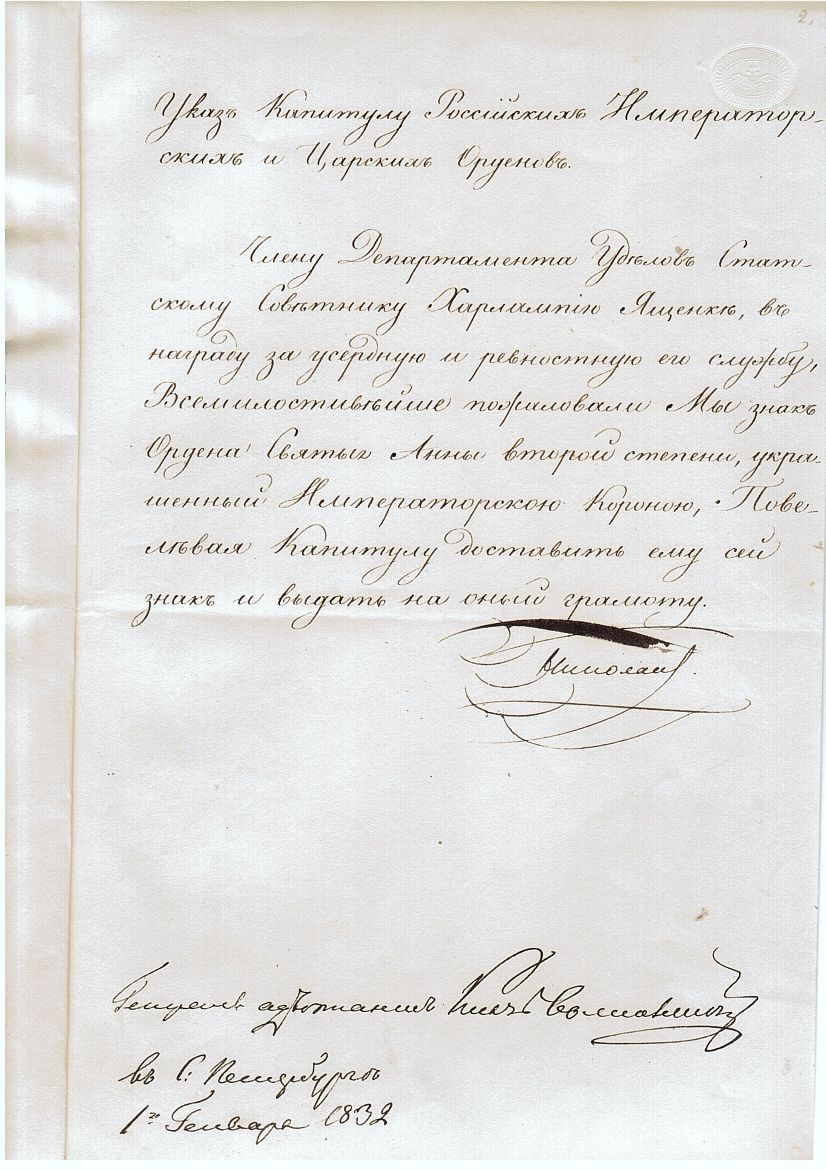 2.
Указъ Капитулу Россійскихъ Император-
скихъ и Царскихъ Орденовъ.
Члену Департамента Удѣловъ Стат-
скому Совѣтнику Харлампію Ященкѣ, въ
награду за усердную и ревностную его службу,
Всемилостивѣйше пожаловали Мы знакъ
Ордена Святыя Анны второй степени, укра-
шенный Императорскою Короною, Пове-
лѣвая Капитулу доставить ему сей
знакъ и выдать на оный грамоту.
Николай.
Генералъ адъютантъ Князь Волконский
въ С: Петербургѣ
1го Генваря 1832